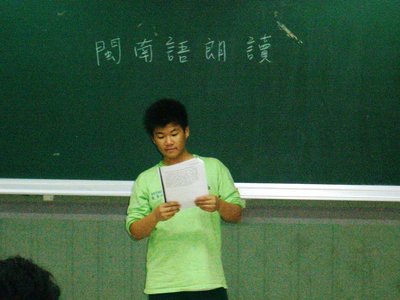 閩南語朗讀